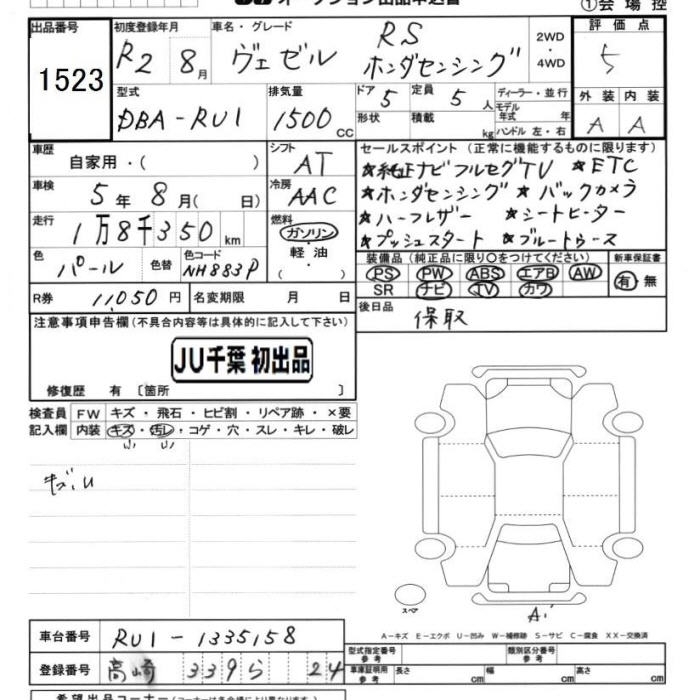 ①会場控
出品番号 初度登録年月 車名・グレード 評価点
1523 R2 8月 ヴェゼル RS ホンダセンシング 2WD・4WD 5
型式 排気量 ドア 定員 ディーラー・並行 外装 内装
DBA-RU1 1500 CC 5 5人 モデル年式 年 A A
形状 積載 kg ハンドル 左・右
車歴 シフト セールスポイント (正常に機能するものに限ります)
自家用・( ) AT ★純正ナビフルセグTV ★ETC
車検 冷房 ★ホンダセンシング ★バックカメラ
5年8月( 日) AAC ★ハーフレザー ★シートヒーター
走行 燃料 ★プッシュスタート ★ブルートゥース
1万8千350km ガソリン・軽油・( )
色 色替 色コード 装備品 (純正品に限り○をつけてください) 新車保証書
パール NH883P PS PW ABS エアB AW 有・無
SR ナビ TV カワ
R券 11,050円 名変期限 月 日 後日品
保取
注意事項申告欄(不具合内容等は具体的に記入して下さい)
JU千葉 初出品
修復歴 有 〔箇所 〕
検査員 FW キズ・飛石・ヒビ割・リペア跡・×要
記入欄 内装 キズ・汚レ・コゲ・穴・スレ・キレ・破レ
小 小
キズ.U
スペア
A1
A-キズ E-エクボ U-凹み W-補修跡 S-サビ C-腐食 XX-交換済
車台番号 RU1-1335158
型式指定番号 参考 類別区分番号 参考
登録番号 高崎 339 ら 24
車庫証明用 参考 長さ cm 幅 cm 高さ cm